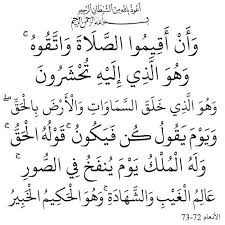 أعوذ بالله من الشيطان الرجيم
بسم الله الرحمن الرحيم
وَأَنْ أَقِيمُوا الصَّلَاةَ وَاتَّقُوهُ ۚ
وَهُوَ الَّذِي إِلَيْهِ تُحْشَرُونَ
وَهُوَ الَّذِي خَلَقَ السَّمَاوَاتِ وَالْأَرْضَ بِالْحَقِّ ۖ
وَيَوْمَ يَقُولُ كُن فَيَكُونُ ۚ قَوْلُهُ الْحَقُّ ۚ
وَلَهُ الْمُلْكُ يَوْمَ يُنفَخُ فِي الصُّورِ ۚ
عَالِمُ الْغَيْبِ وَالشَّهَادَةِ ۚ وَهُوَ الْحَكِيمُ الْخَبِيرُ
الأنعام 72-73